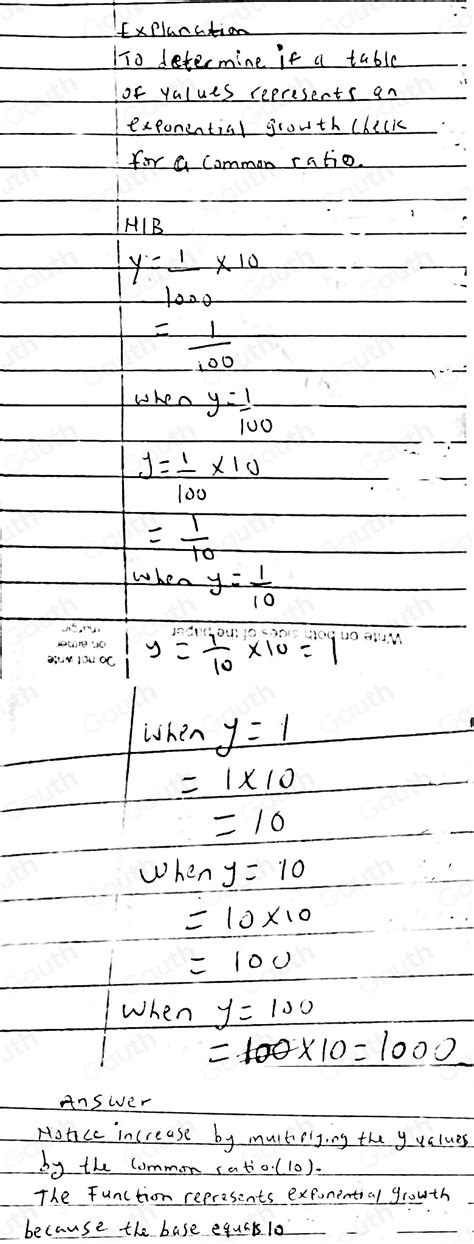 Explanation
To determine if a table
of values represents an
exponential growth check
for a common ratio.
HIB
y = 1/1000 × 10
= 1/100
when y = 1/100
y = 1/100 × 10
= 1/10
when y = 1/10
Write on both sides of the paper
Do not write
on either
margin
y = 1/10 × 10 = 1
when y = 1
= 1 × 10
= 10
when y = 10
= 10 × 10
= 100
when y = 100
= 100 × 10 = 1000
Answer
Notice increase by multiplying the y values
by the common ratio (10).
The Function represents exponential growth
because the base equals 10
Gauth